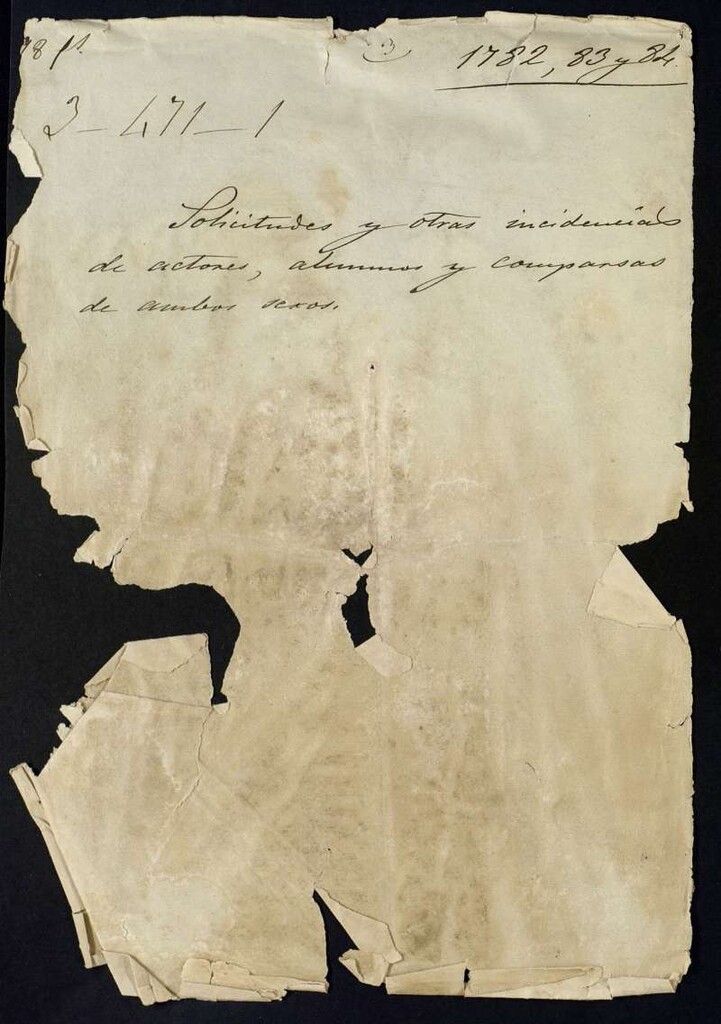 1782, 83 y 84.
3-471-1
Solicitudes y otras incidencias
de actores, alumnos y comparsas
de ambos sexos.